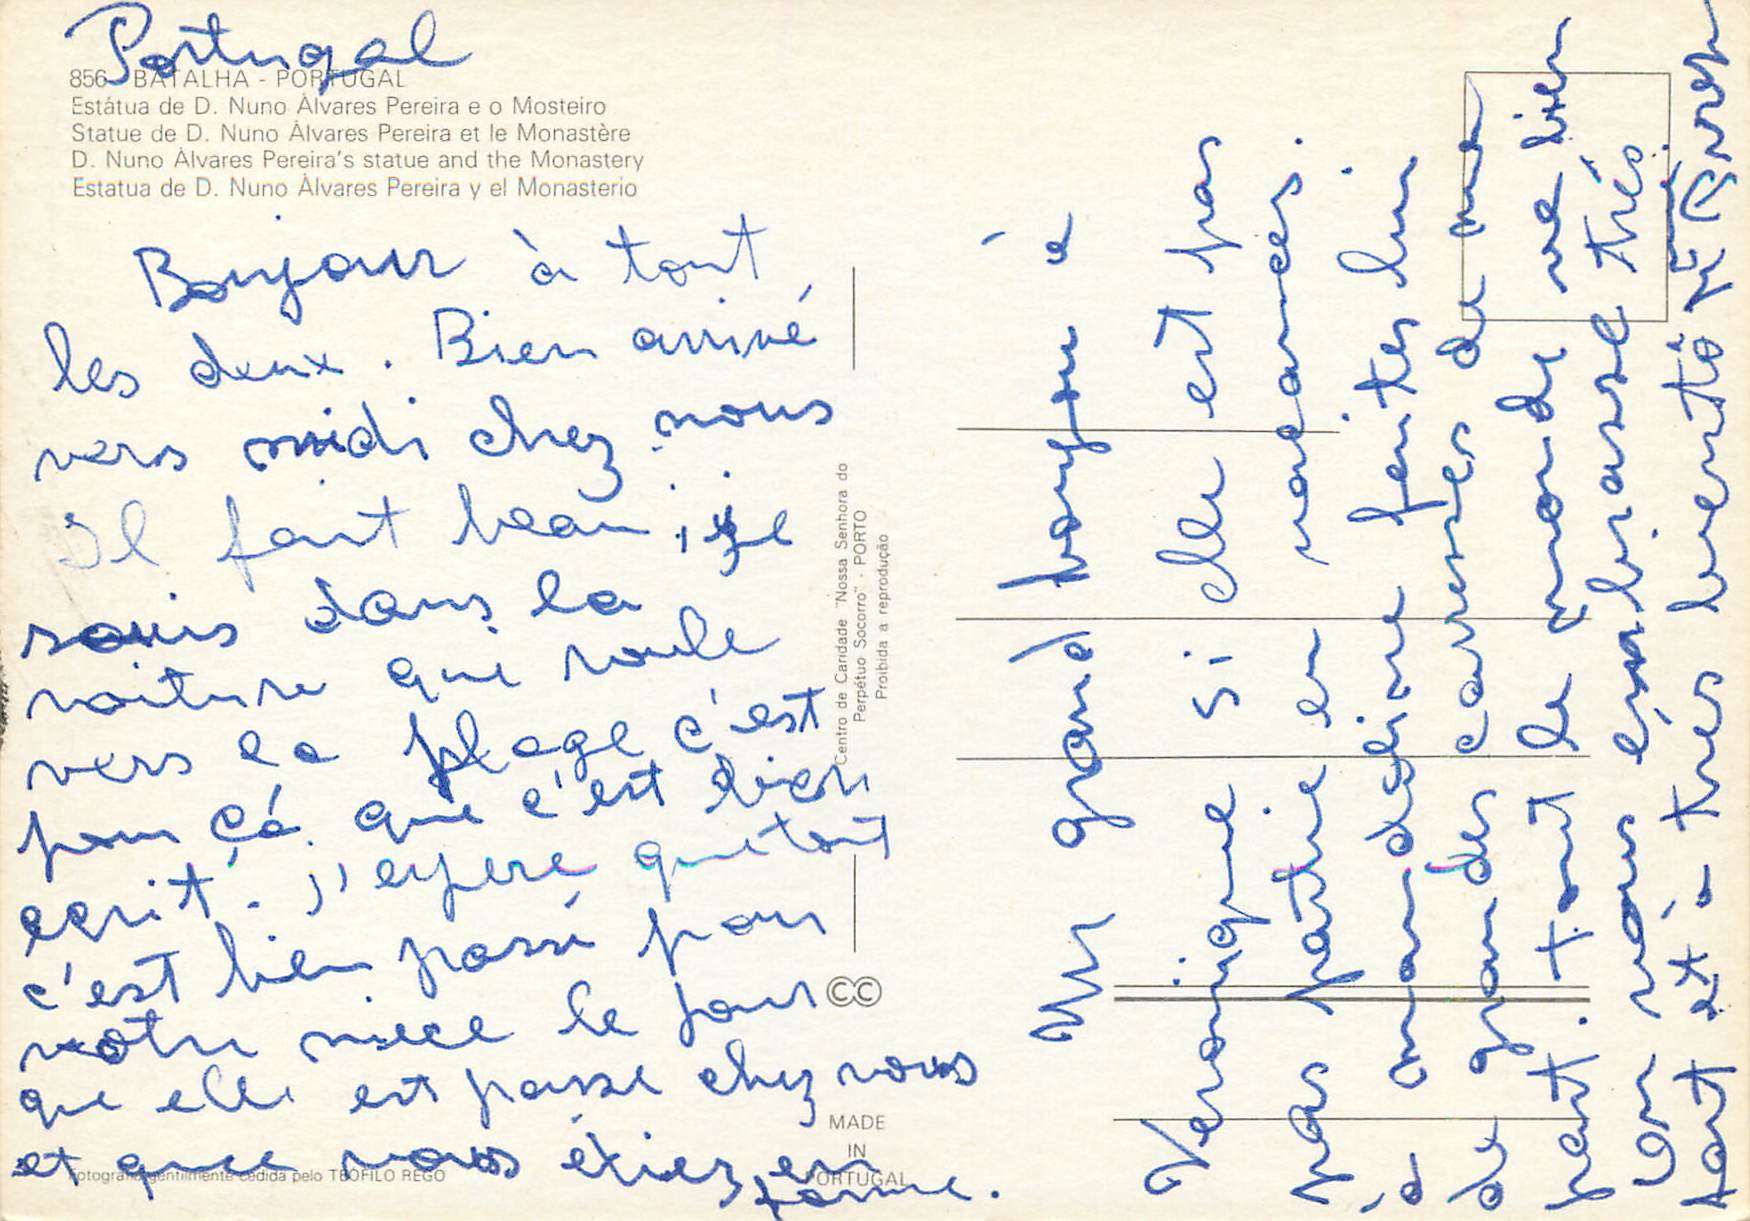 Portugal
856 - BATALHA - PORTUGAL
Estátua de D. Nuno Álvares Pereira e o Mosteiro
Statue de D. Nuno Álvares Pereira et le Monastère
D. Nuno Álvares Pereira's statue and the Monastery
Estatua de D. Nuno Álvares Pereira y el Monasterio
Bonjour à tout
les deux. Bien arrivé
vers midi chez nous
Il fait beau, je
suis dans la
voiture qui roule
vers la plage c'est
pour çá que c'est bien
ecrit. j'espere que tout
c'est bien passé pour
votre niece le jour
que elle est passe chez vous
et que vous étiez en
forme.
Centro de Caridade "Nossa Senhora do
Perpétuo Socorro" - PORTO
Proibida a reprodução
CC
MADE
IN
PORTUGAL
Fotografia gentilmente cedida pelo TEÓFILO REGO
Un grand bonjour à
Veronique si elle est pas
pas partie en vacances.
à mandeline faites lui
de grandes caresses de ma
part. tout le monde va bien
on vous embrasse très
fort et à très bientôt